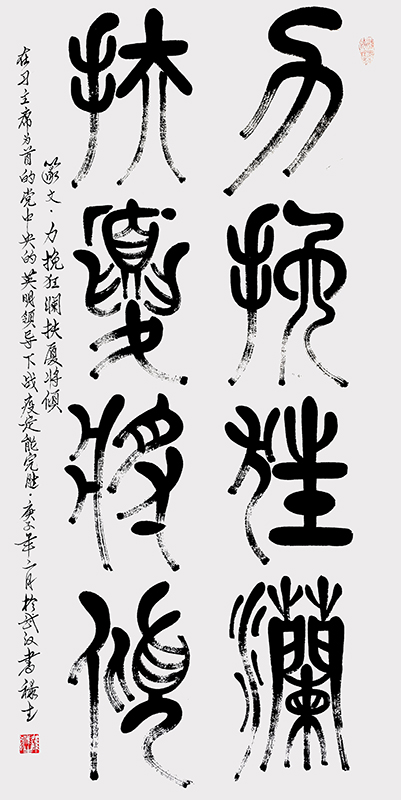 力挽狂澜
扶厦将倾
篆文·力挽狂澜扶厦将倾
在习主席为首的党中央的英明领导下战疫定能完胜·庚子年二月於武汉书